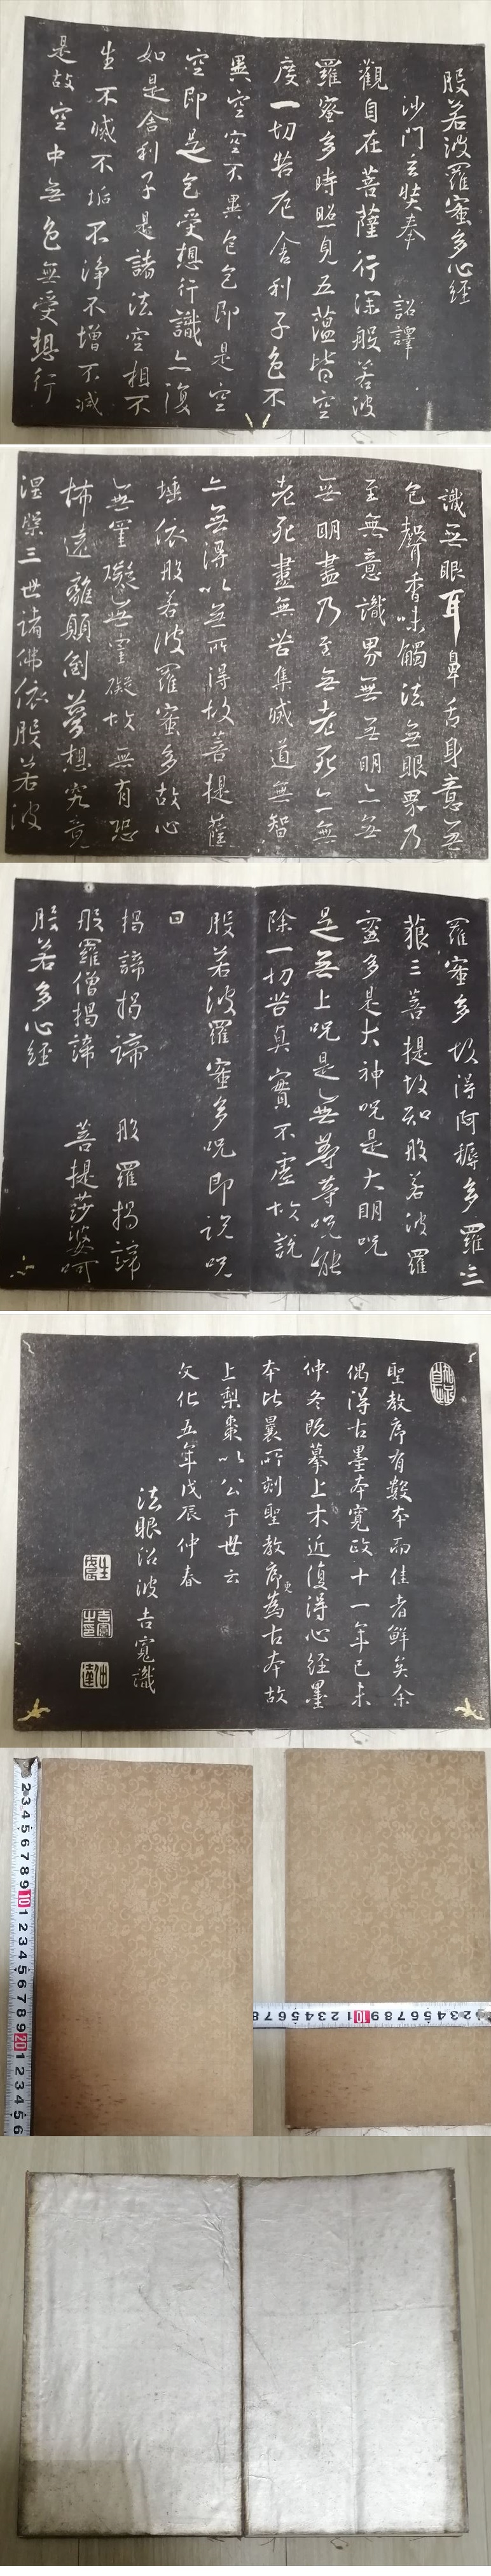 般若波羅蜜多心經
沙門玄奘奉 詔譯
觀自在菩薩行深般若波
羅蜜多時照見五蘊皆空
度一切苦厄舍利子色不
異空空不異色色即是空
空即是色受想行識亦復
如是舍利子是諸法空相不
生不滅不垢不淨不增不減
是故空中無色無受想行
識無眼耳鼻舌身意無
色聲香味觸法無眼界乃
至無意識界無無明亦無
無明盡乃至無老死亦無
老死盡無苦集滅道無智
亦無得以無所得故菩提薩
埵依般若波羅蜜多故心
無罣礙無罣礙故無有恐
怖遠離顛倒夢想究竟
涅槃三世諸佛依般若波
羅蜜多故得阿耨多羅三
藐三菩提故知般若波羅
蜜多是大神呪是大明呪
是無上呪是無等等呪能
除一切苦真實不虛故說
般若波羅蜜多呪即說呪
曰
揭諦揭諦 般羅揭諦
般羅僧揭諦 菩提莎婆呵
般若多心經
聖教序有數本而佳者鮮矣余
偶得古墨本寬政十一年己未
仲冬既摹上木近復得心經墨
本比曩所刻聖教序更為古本故
上梨棗以公于世云
文化五年戊辰仲春
法眼沿波吉寬識
2 3 4 5 6 7 8 9 10 1 2 3 4 5 6 7 8 9 20 1 2 3 4 5 6
8 7 6 5 4 3 2 1 10 9 8 7 6 5 4 3 2